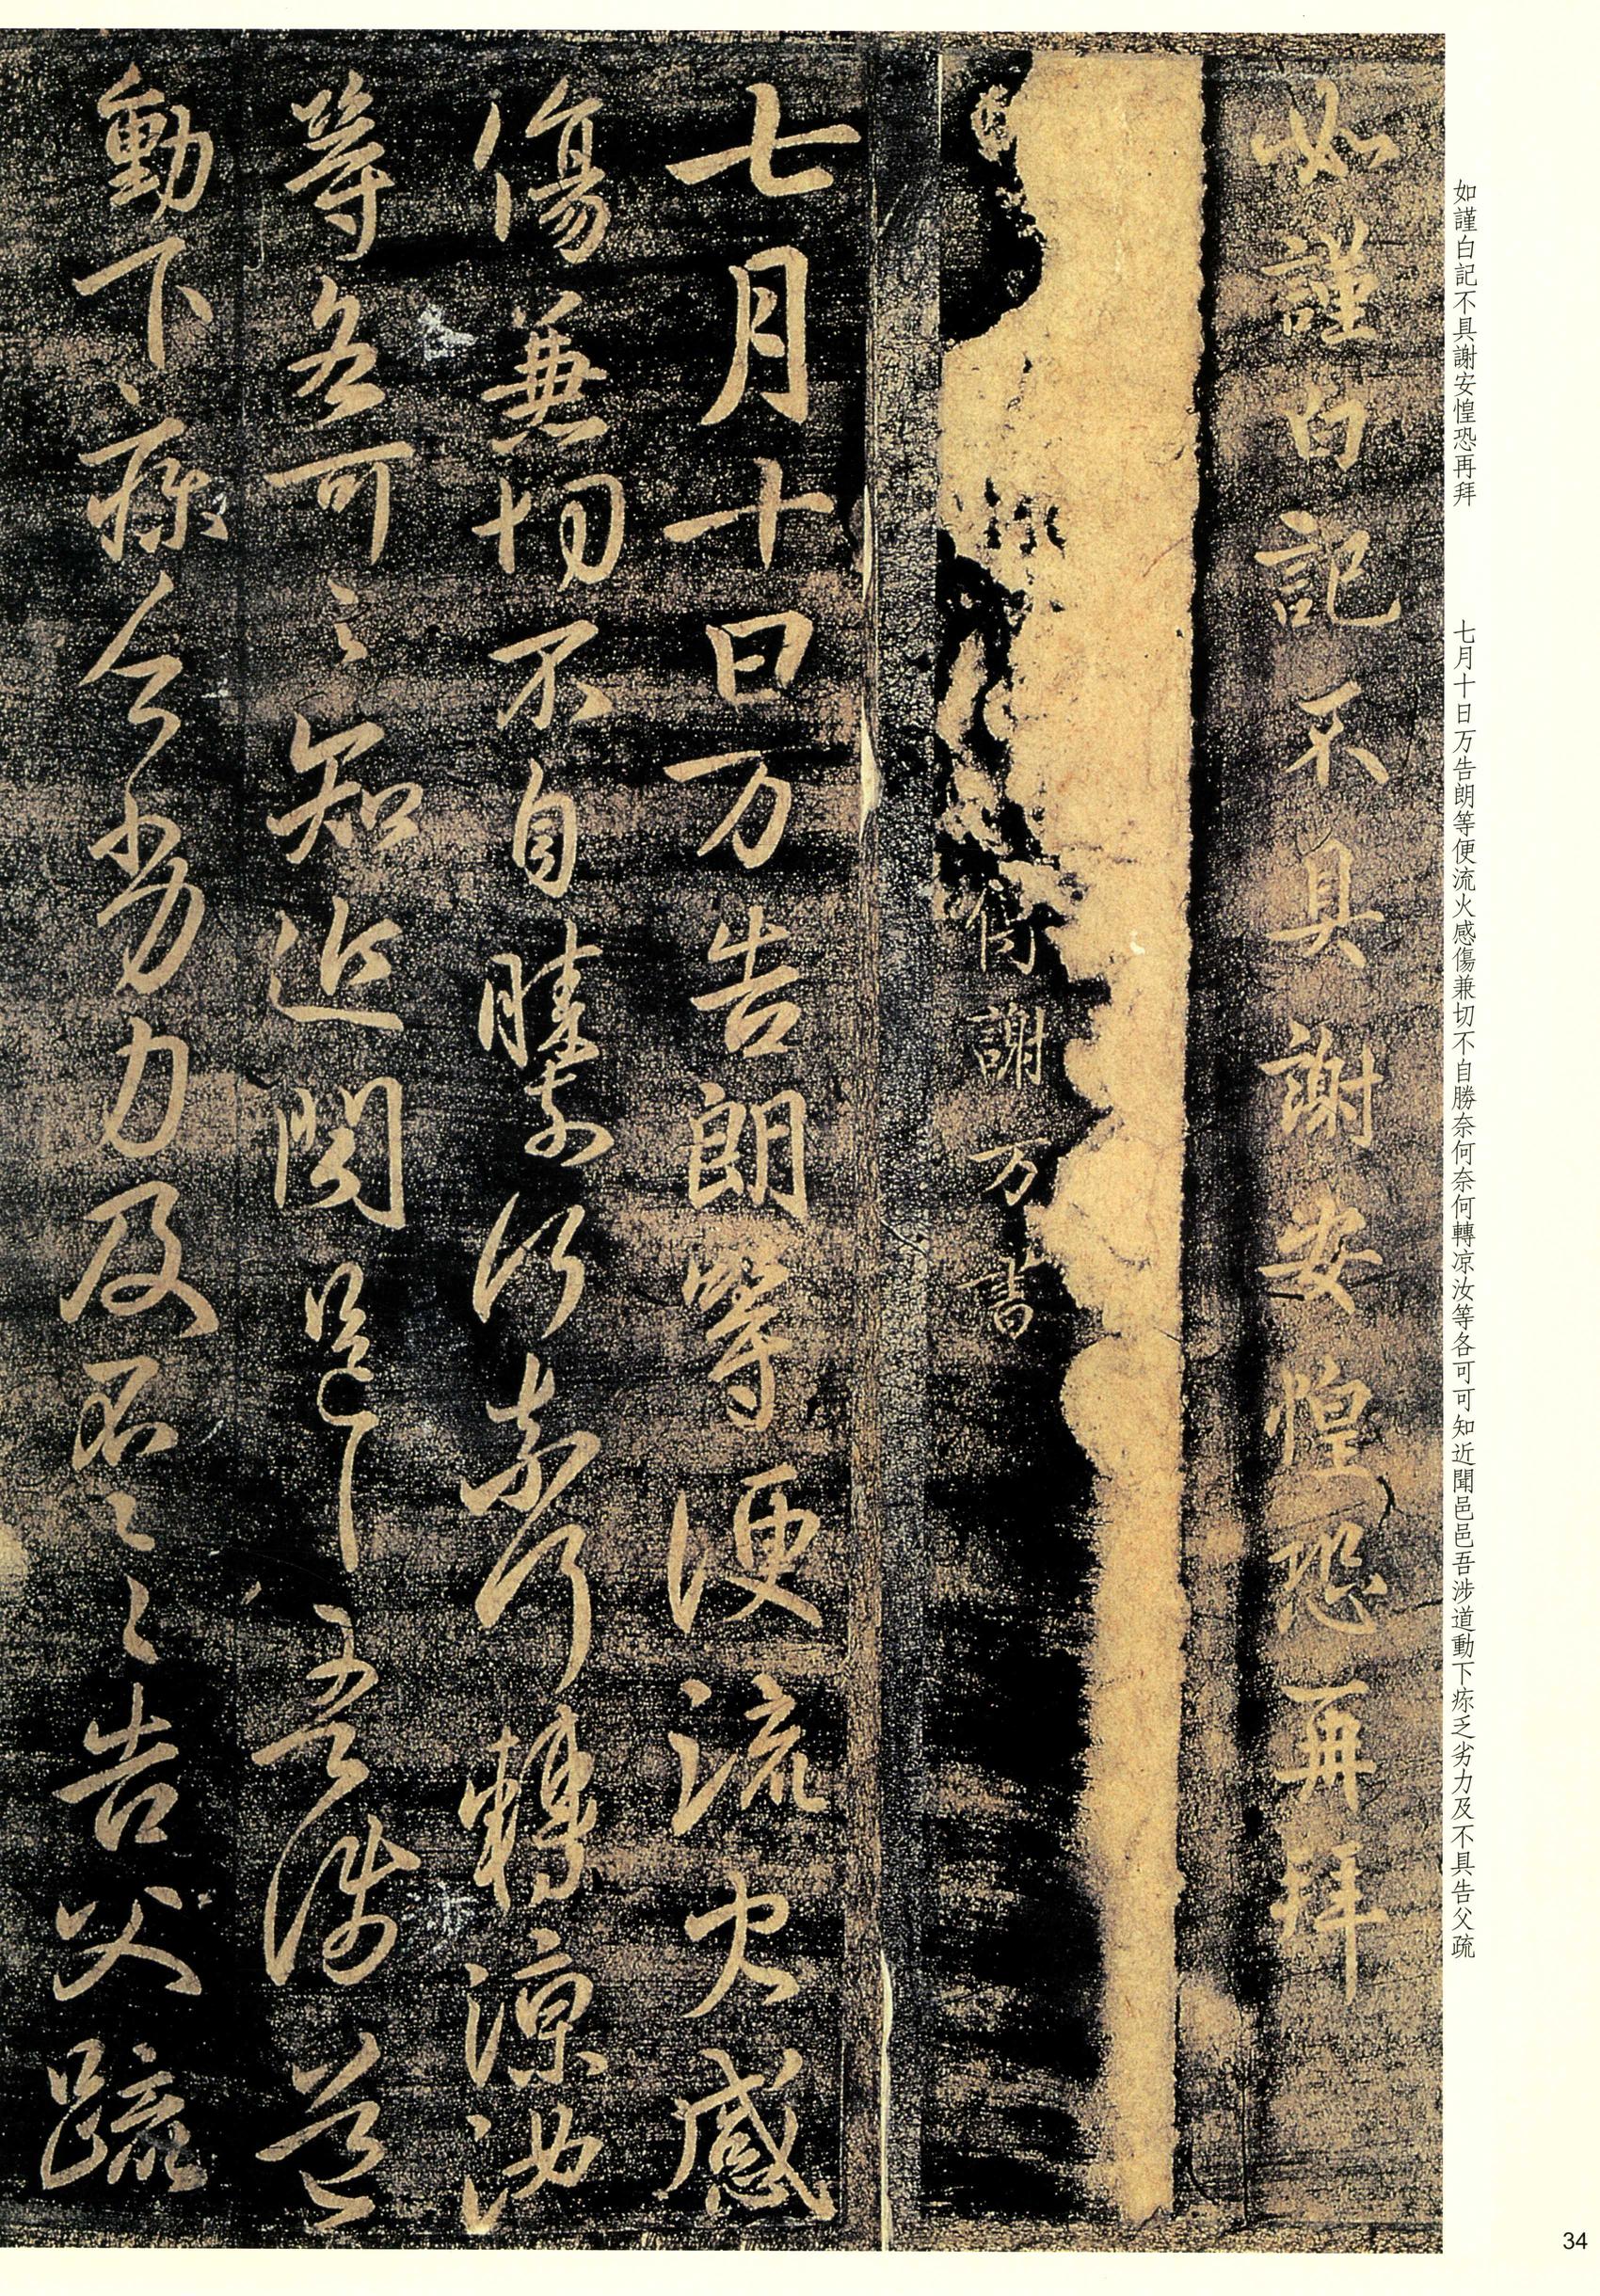 如謹白記不具謝安惶恐再拜
七月十日万告朗等便流火感傷兼切不自勝奈何奈何轉凉汝等各可可知近聞邑邑吾涉道動下疢乏劣力及不具告父疏
如謹白記不具謝安惶恐再拜
謝万書
七月十日万告朗等便流火感
傷兼切不自勝奈何奈何轉涼汝
等各可〻知近聞邑〻吾涉道
動下疢乏劣力及不具告父疏
34